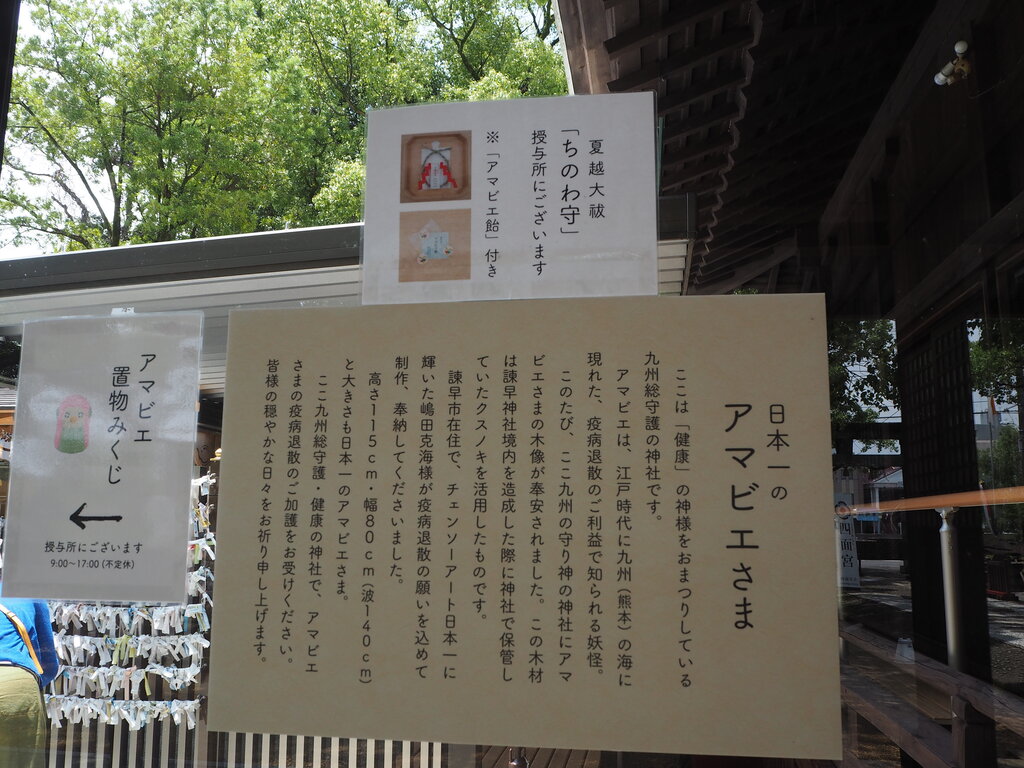 夏越大祓
「ちのわ守」
授与所にございます
※「アマビエ飴」付き
日本一の
アマビエさま
ここは「健康」の神様をおまつりしている
九州総守護の神社です。
アマビエは、江戸時代に九州（熊本）の海に
現れた、疫病退散のご利益で知られる妖怪。
このたび、ここ九州の守り神の神社にアマ
ビエさまの木像が奉安されました。この木材
は諫早神社境内を造成した際に神社で保管し
ていたクスノキを活用したものです。
諫早市在住で、チェンソーアート日本一に
輝いた嶋田克海様が疫病退散の願いを込めて
制作、奉納してくださいました。
高さ115cm・幅80cm（波140cm）
と大きさも日本一のアマビエさま。
ここ九州総守護・健康の神社で、アマビエ
さまの疫病退散のご加護をお受けください。
皆様の穏やかな日々をお祈り申し上げます。
アマビエ
置物みくじ
授与所にございます
9:00～17:00（不定休）
四面宮